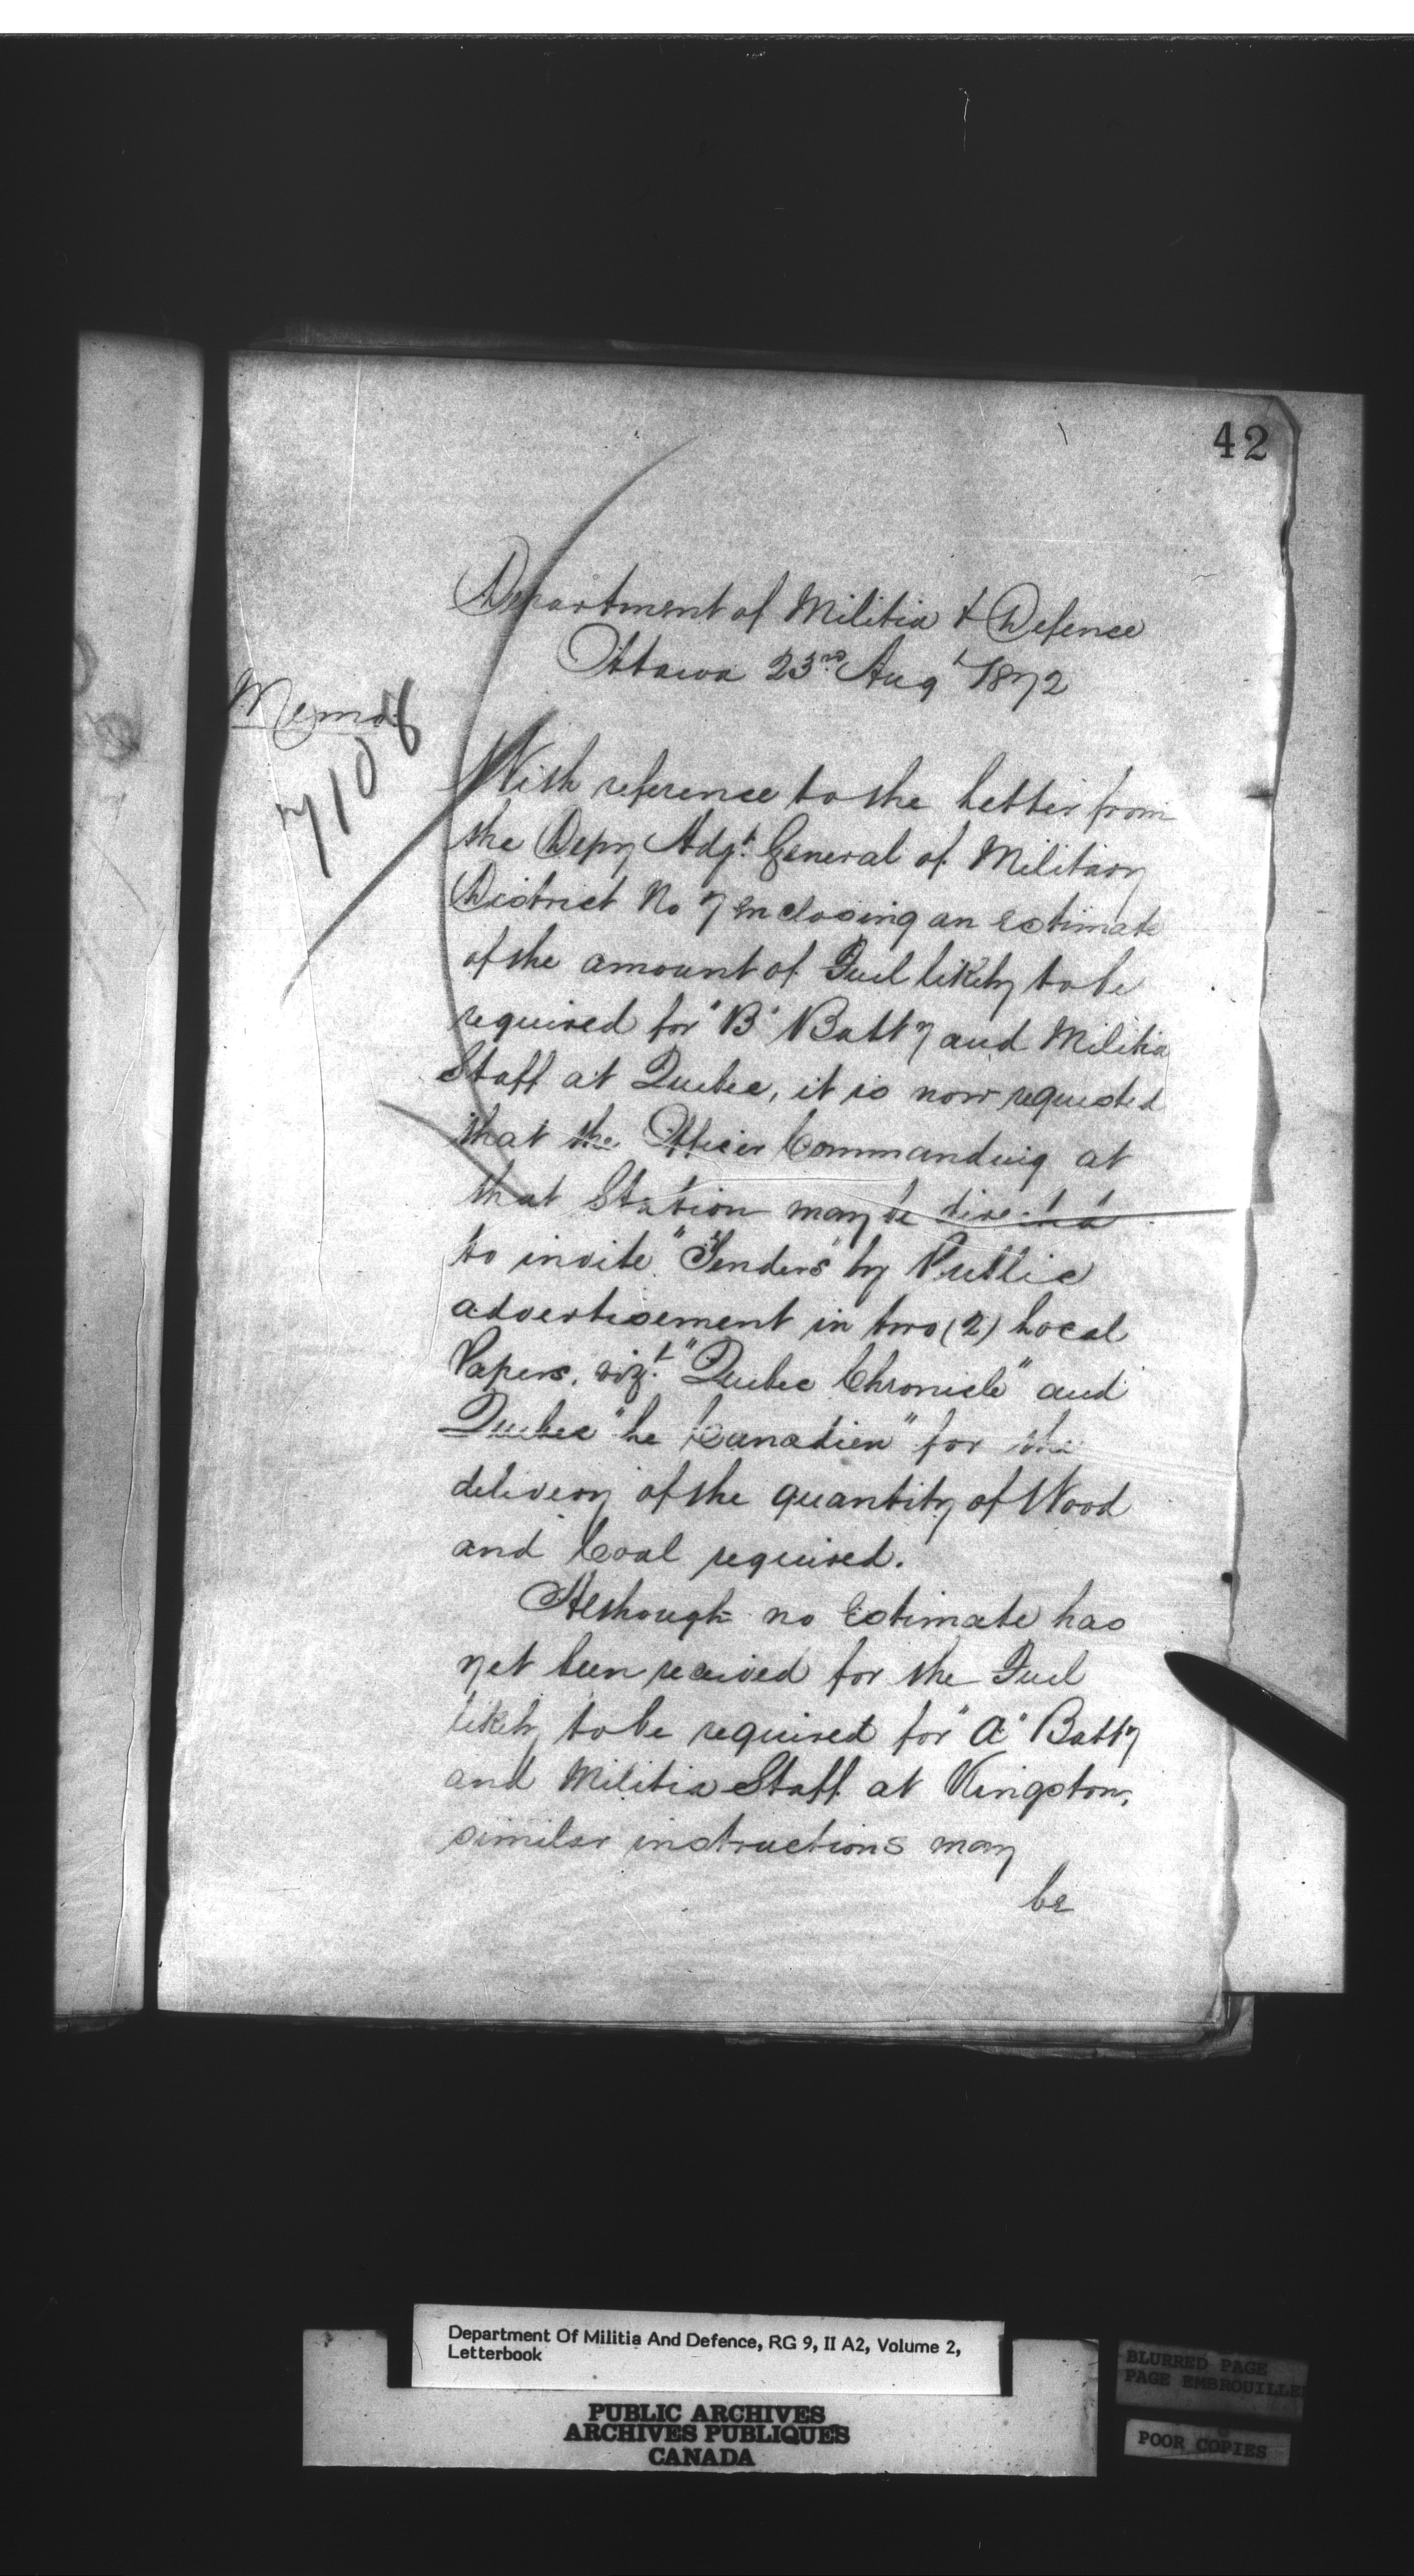 42
Department of Militia & Defence
Ottawa 23rd Augt 1872
Memo.
7108
With reference to the Letter from
the Depy Adjt. General of Military
District No 7 enclosing an estimate
of the amount of Fuel likely to be
required for "B" Batty and Militia
Staff at Quebec, it is now requested
that the Officer Commanding at
that Station may be directed
to invite "Tenders" by Public
advertisement in two (2) Local
Papers, vizt. "Quebec Chronicle" and
Quebec "Le Canadien" for the
delivery of the quantity of Wood
and Coal required.
Although no Estimate has
yet been received for the Fuel
likely to be required for "A" Batty
and Militia Staff at Kingston,
similar instructions may
be
Department Of Militia And Defence, RG 9, II A2, Volume 2,
Letterbook
PUBLIC ARCHIVES
ARCHIVES PUBLIQUES
CANADA
BLURRED PAGE
PAGE EMBROUILLE
POOR COPIES